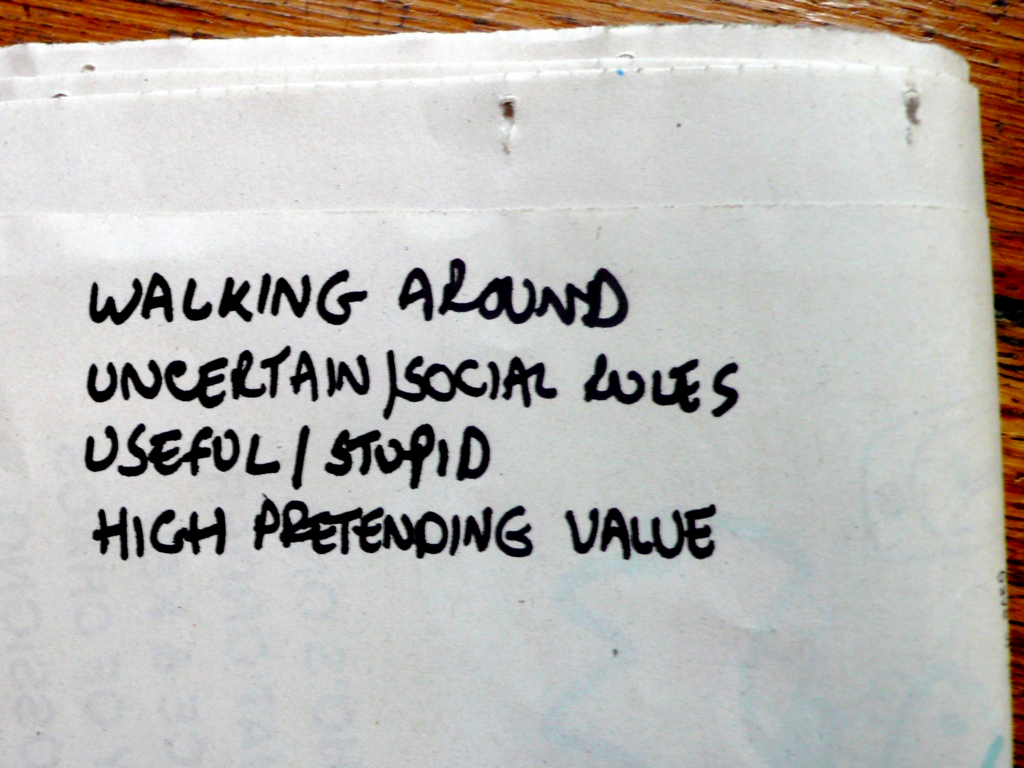 WALKING AROUND
UNCERTAIN/SOCIAL RULES
USEFUL/STUPID
HIGH PRETENDING VALUE